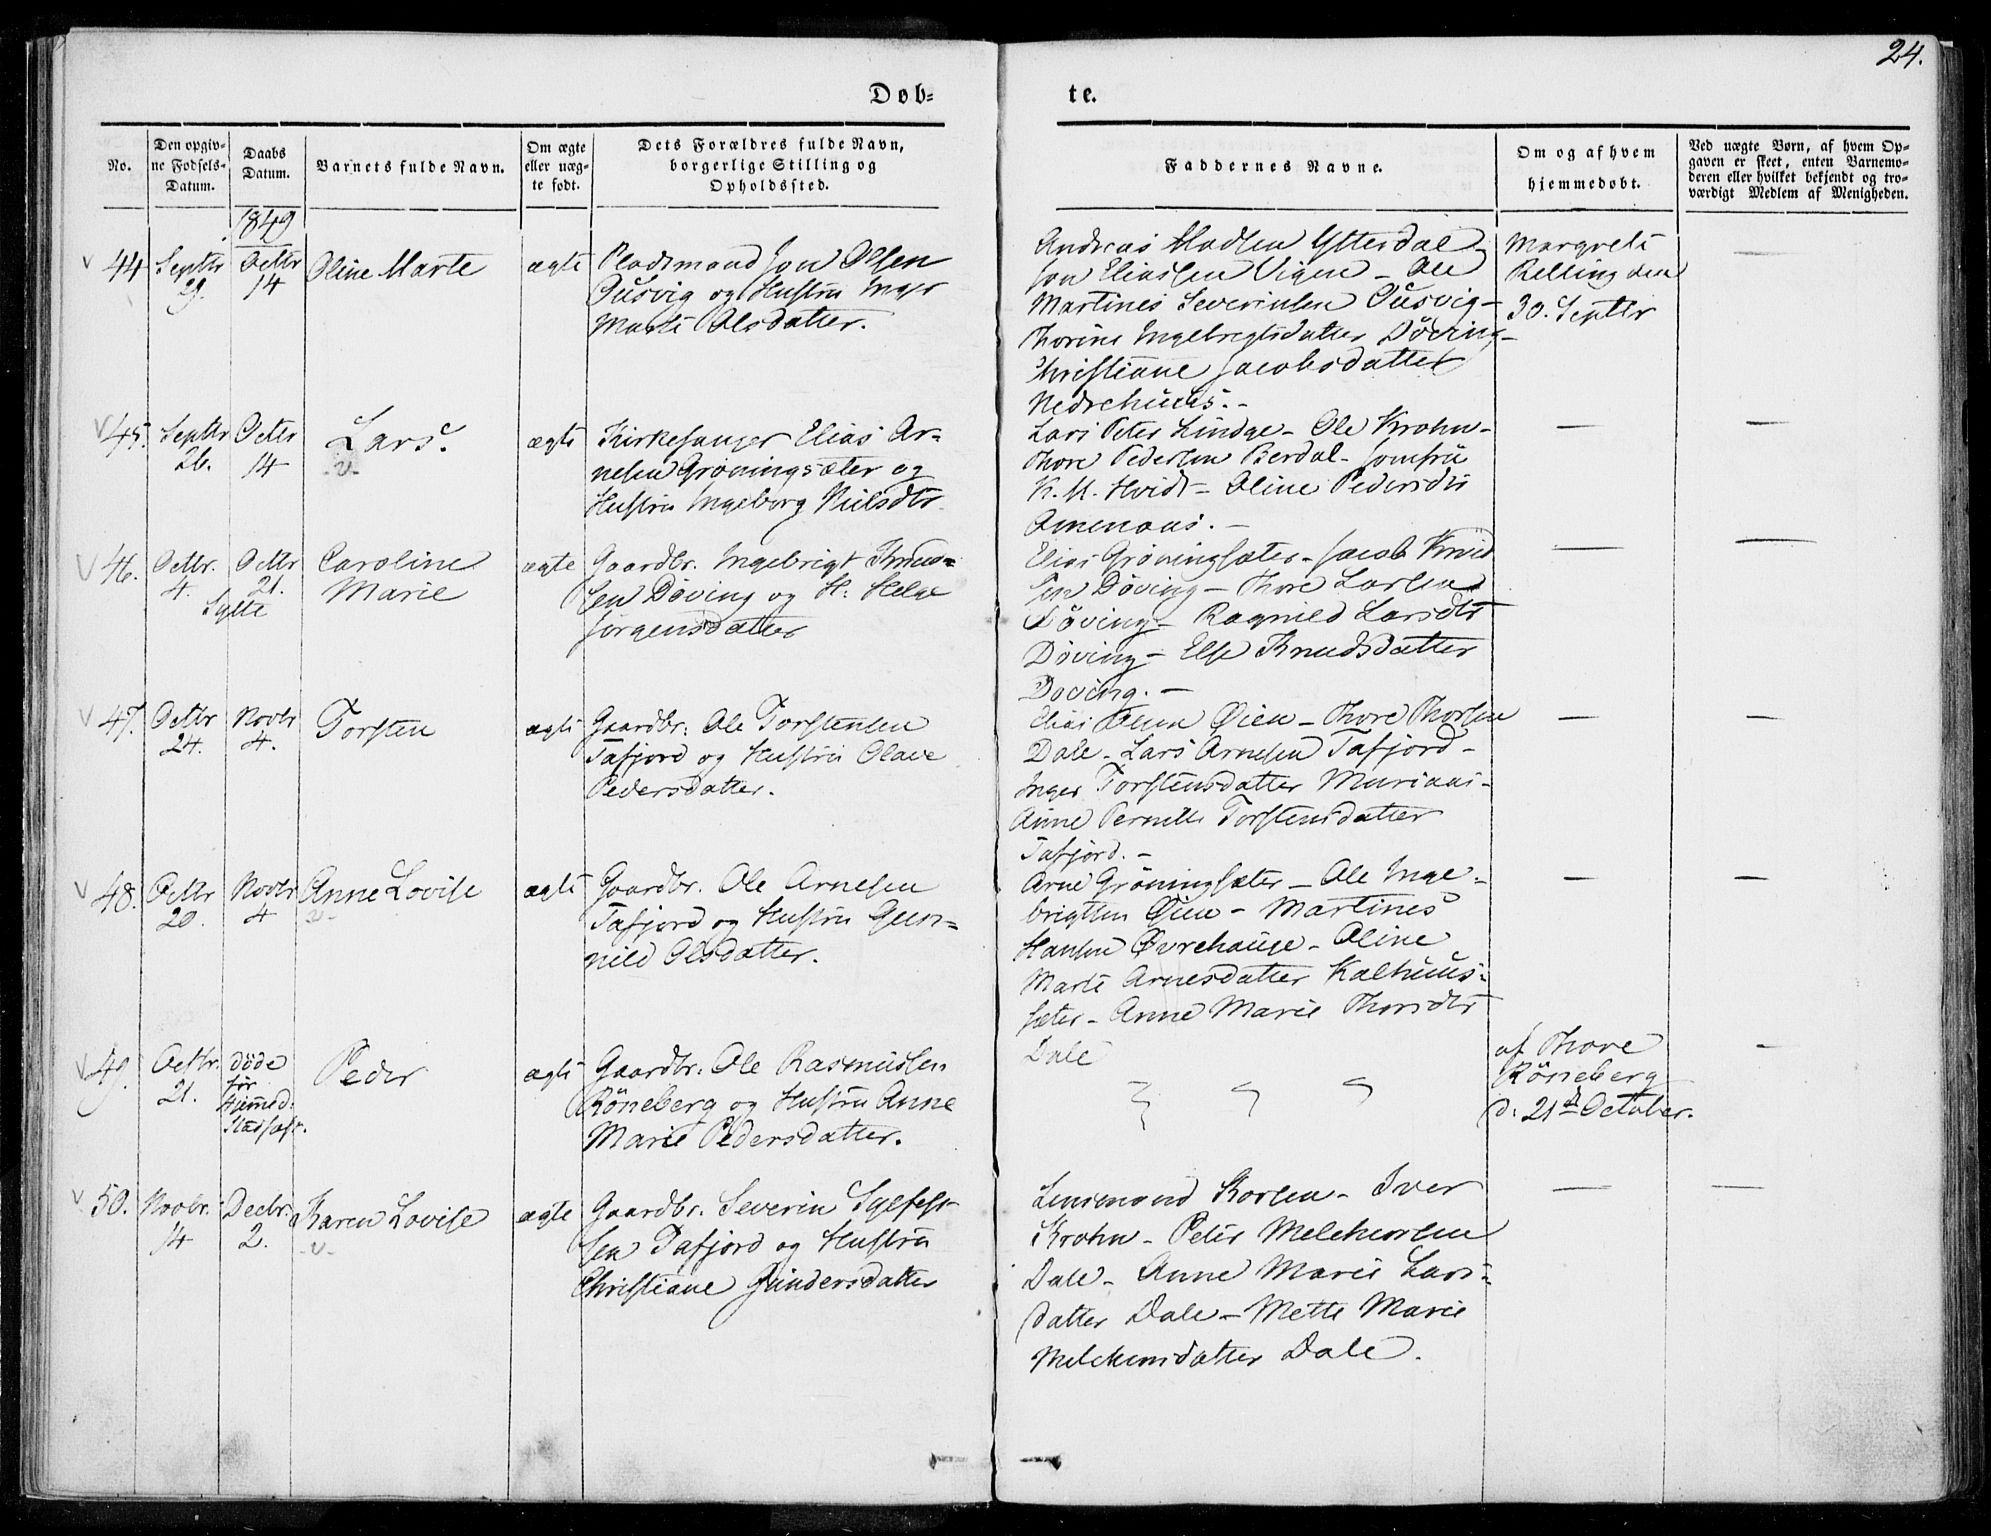 24.
Døb=
te.
No.
Den opgiv=
ne Fødsels=
Datum.
Daabs
Datum.
Barnets fulde Navn.
Om ægte
eller uæg=
te født.
Dets Forældres fulde Navn,
borgerlige Stilling og
Opholdssted.
Faddernes Navne.
Om og af hvem
hjemmedøbt.
Ved uægte Børn, af hvem Op=
gaven er skeet, enten Barnemo=
deren eller hvilket bekjendt og tro=
værdigt Medlem af Menigheden.
1849
44
Septbr
29.
Octbr
14
Oline Marte
ægte
Pladsmand Jon Olsen
Uusvig og Hustru Inger
Marte Olsdatter.
Andreas Madsen Ytterdal
Jon Eliassen Vigen - Ole
Martines Severinsen Uusvig -
Thorine Ingebrigtsdatter Döving -
Christiane Jacobsdatter
Nedrehuus. -
Margrete
Relling den
30. Septbr
45.
Septbr
26.
Octbr
14
Lars.
-v-
ægte
Kirkesanger Elias Ar=
nesen Gröningsæter og
Hustru Ingeborg Nielsdtr
Lars Peter Lindge - Ole Krohn -
Thore Pedersen Berdal - Jomfru
K. M. Hvidt - Oline Pedersdtr
Omenaas. -
46.
Octbr.
4.
Octbr
21.
Sylte
Caroline
Marie
ægte
Gaardbr. Ingebrigt Knud=
sen Döving og H: Helge
Jörgensdatter
Elias Gröningsæter - Jacob Knud
sen Döving - Thore Larsen
Döving - Ragnild Larsdtr
Döving - Else Knudsdatter
Döving. -
47.
Octbr
24.
Novbr
4.
Torsten
ægte
Gaardbr: Ole Torstensen
Tafjord og Hustru Olave
Pedersdatter.
Elias Olsen Øien - Thore Thorsen
Dale - Lars Arnesen Tafjord -
Inger Torstensdatter Muriaas -
Anne Pernille Torstensdatter
Tafjord. -
48.
Octbr
20.
Novbr
4
Anne Lovise
-v-
ægte
Gaardbr. Ole Arnesen
Tafjord og Hustru Gun=
nild Olsdatter.
Arne Gröningsæter - Ole Inge=
brigtsen Øien - Martines
Hansen Øvrehauge - Oline
Marte Arnesdatter Kalhuus=
sæter - Anne Marie Thorsdtr
Dale
49.
Octbr.
21.
döde
för
Hjemmed:
Stadfæst.
Peder
ægte
Gaardbr: Ole Rasmussen
Röneberg og Hustru Anne
Marie Pedersdatter.
af Thore
Röneberg
d: 21d October.
50.
Novbr.
14
Decbr.
2.
Karen Lovise
-v-
ægte
Gaardbr. Severin Sylfest=
sen Tafjord og Hustru
Christiane Gundersdatter
Lensmand Korsen - Iver
Krohn - Peter Melchiorsen
Dale - Anne Marie Lars=
datter Dale - Mette Marie
Melchiorsdatter Dale.